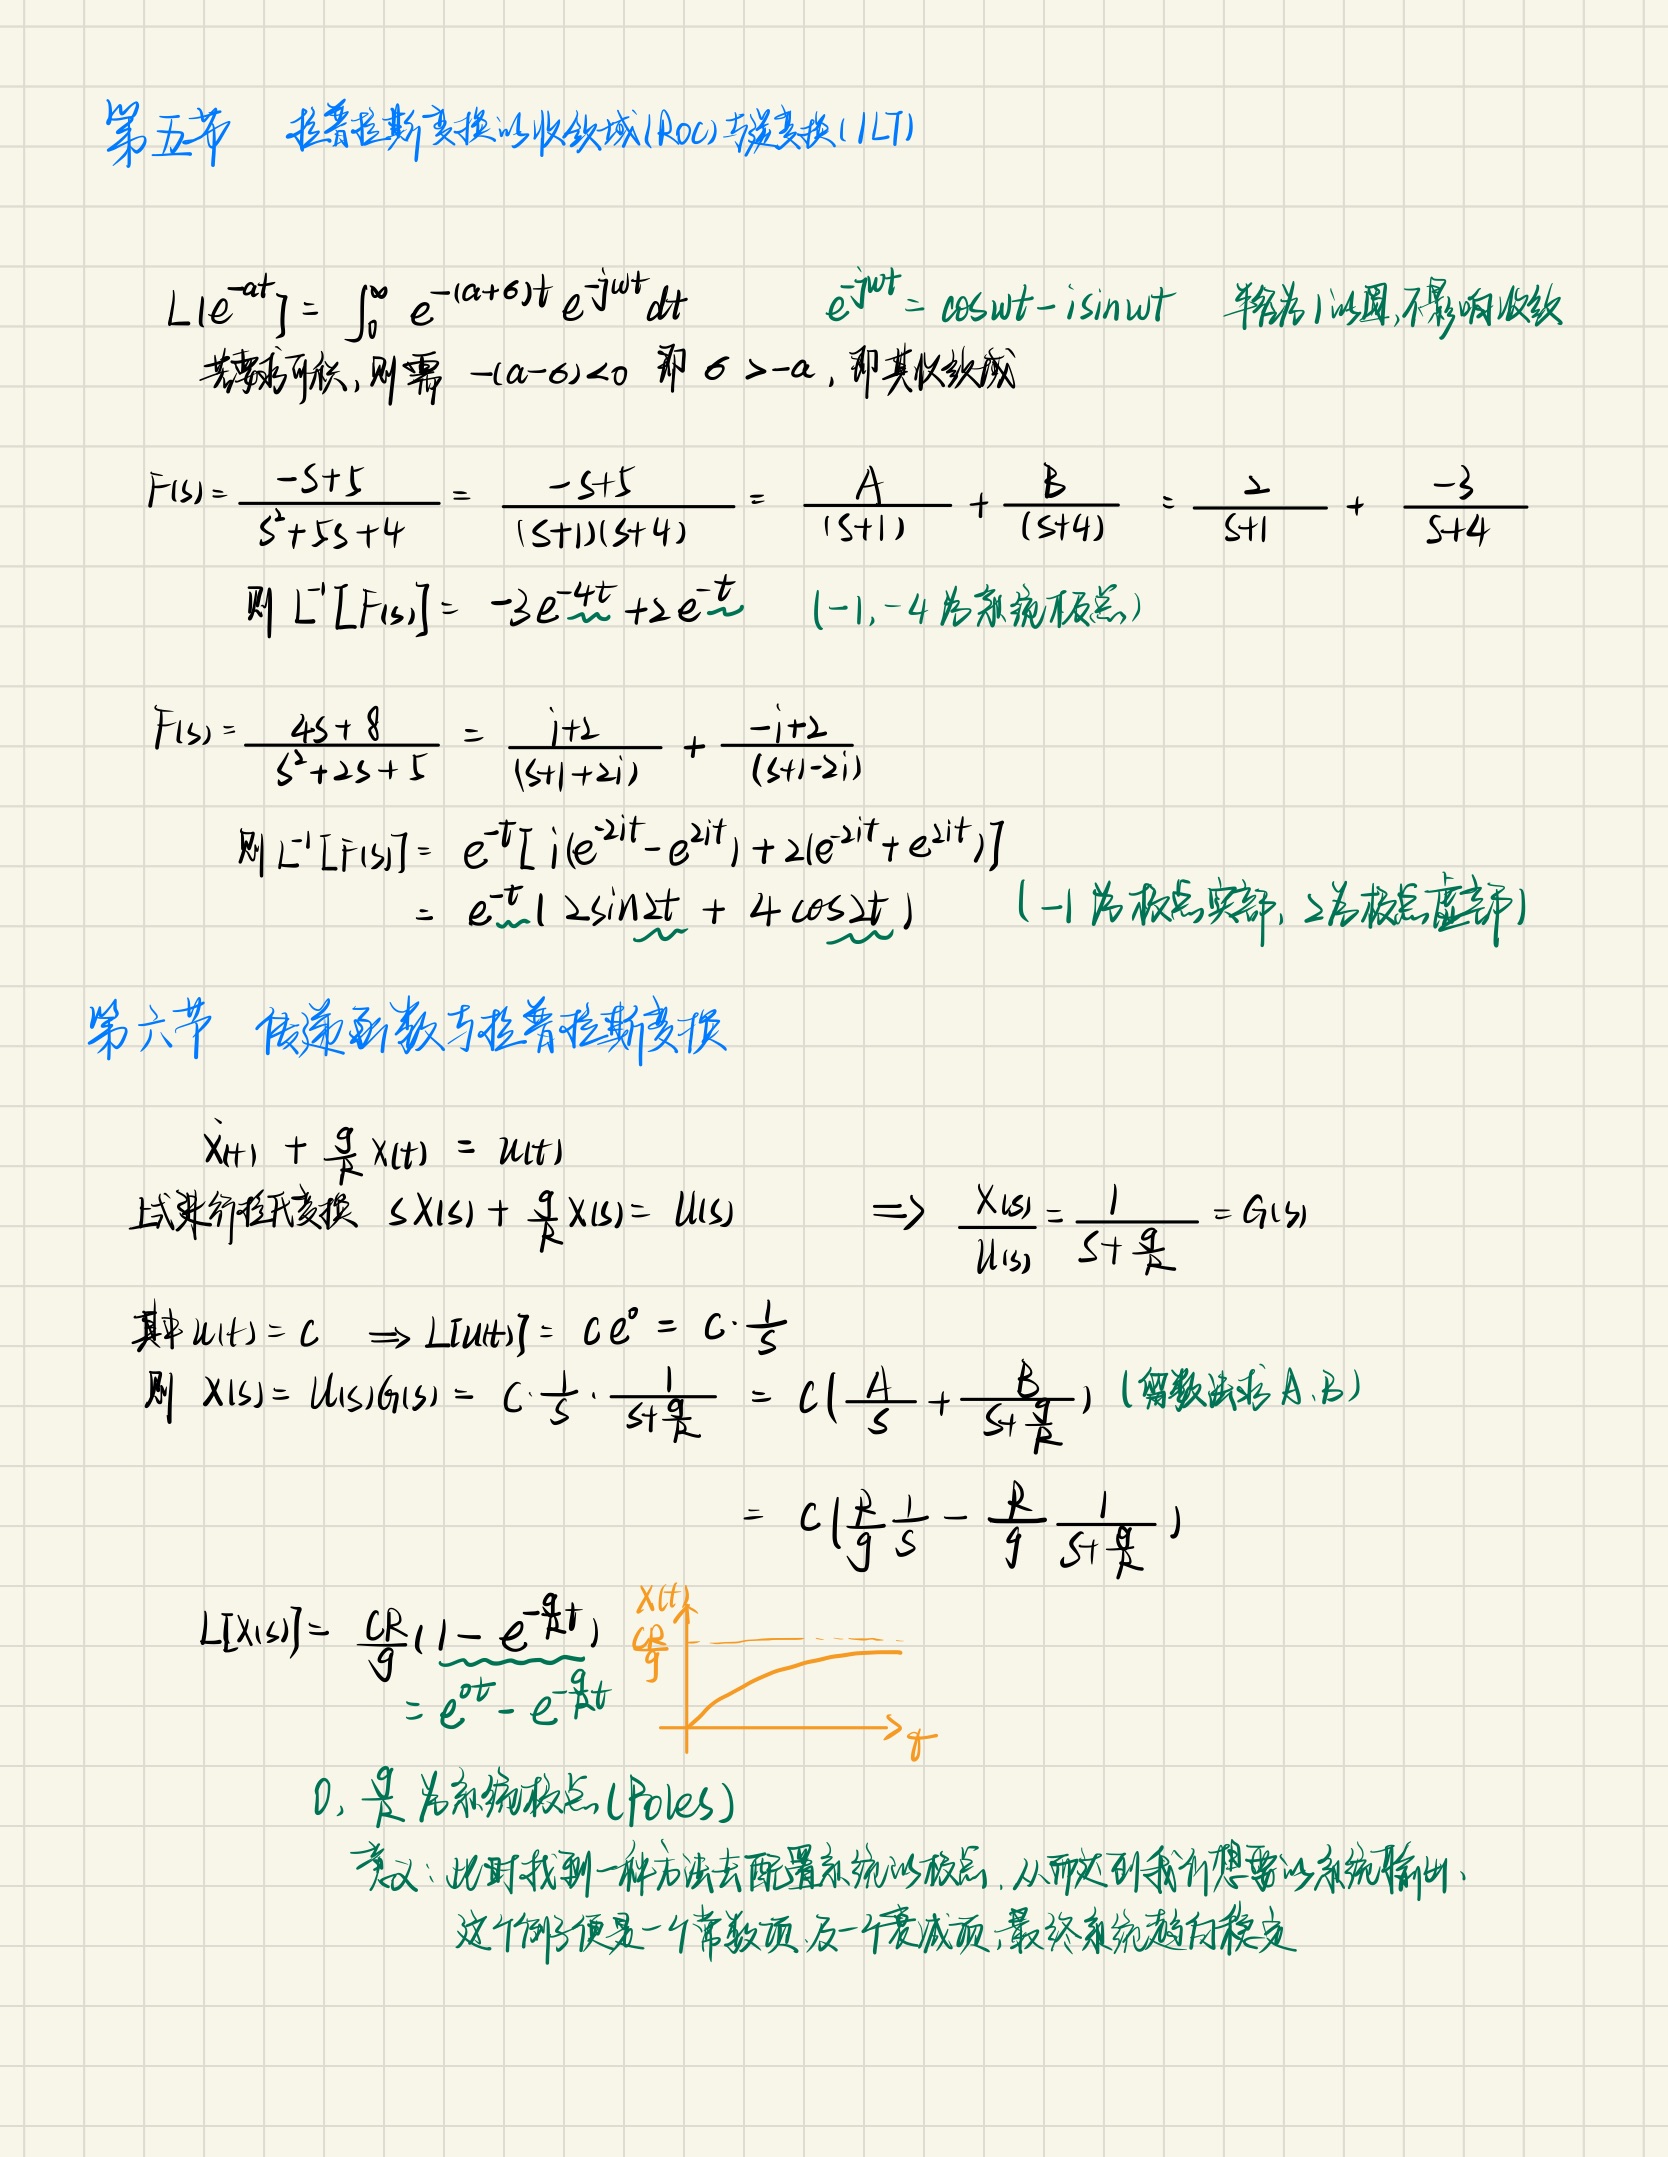 第五节 拉普拉斯变换的收敛域(ROC)与逆变换(ILT)
L[e^{-at}] = ∫_0^∞ e^{-(a+σ)t} e^{-jωt} dt e^{-jωt} = cosωt - isinωt 半径为1的圆,不影响收敛
若要求可积,则需 -(a-σ)<0 即 σ >-a, 即其收敛域
F(s) = (-s+5)/(s²+5s+4) = (-s+5)/((s+1)(s+4)) = A/(s+1) + B/(s+4) = 2/(s+1) + -3/(s+4)
则 L^{-1}[F(s)] = -3e^{-4t} + 2e^{-t} (-1,-4 为系统极点)
F(s) = (4s+8)/(s²+2s+5) = (i+2)/(s+1+2i) + (-i+2)/(s+1-2i)
则 L^{-1}[F(s)] = e^{-t}[i(e^{-2it} - e^{2it}) + 2(e^{-2it} + e^{2it})]
= e^{-t}(2sin2t + 4cos2t) (-1 为极点实部, 2为极点虚部)
第六节 传递函数与拉普拉斯变换
ẋ(t) + g/R x(t) = u(t)
上式进行拉氏变换 sX(s) + g/R X(s) = U(s) ⇒ X(s)/U(s) = 1/(s+g/R) = G(s)
其中 u(t) = C ⇒ L[u(t)] = Ce⁰ = C·1/s
则 X(s) = U(s)G(s) = C·1/s·1/(s+g/R) = C(A/s + B/(s+g/R)) (留数法求 A.B)
= C(R/g 1/s - R/g 1/(s+g/R))
L[X(s)] = CR/g (1 - e^{-g/R t})
= e^{0t} - e^{-g/R t}
X(t)
CR/g
0, g/R 为系统极点(Poles)
意义: 此时找到一种方法去配置系统的极点, 从而达到我们想要的系统输出、
这个例子便是一个常数项及一个衰减项,最终系统趋向稳定